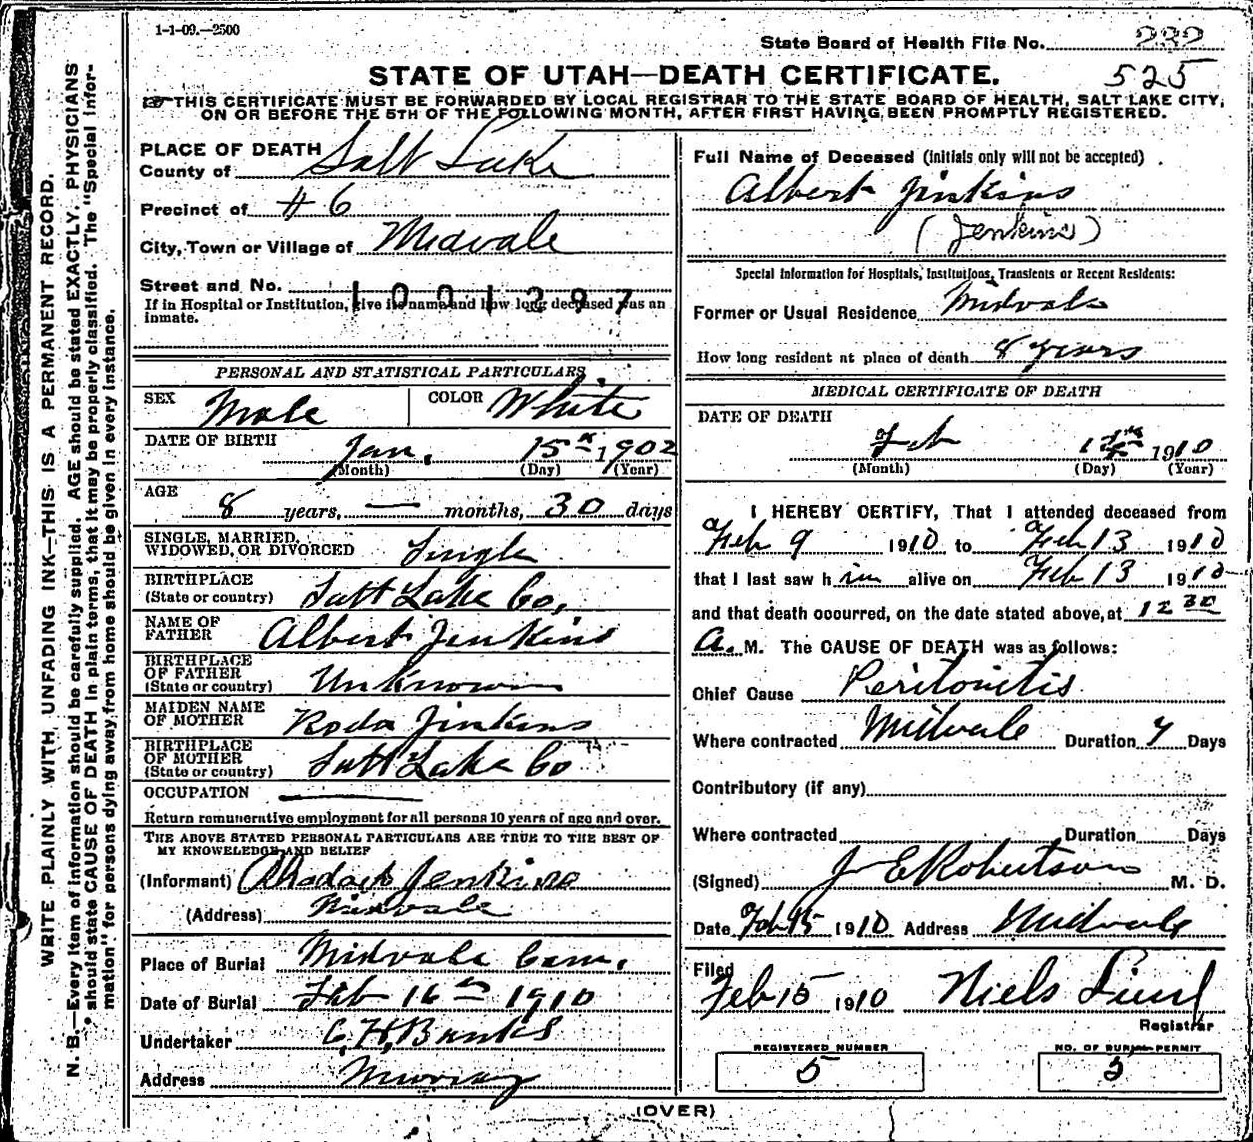 1-1-09.—2500
State Board of Health File No. 232
525
STATE OF UTAH—DEATH CERTIFICATE.
THIS CERTIFICATE MUST BE FORWARDED BY LOCAL REGISTRAR TO THE STATE BOARD OF HEALTH, SALT LAKE CITY,
ON OR BEFORE THE 5TH OF THE FOLLOWING MONTH, AFTER FIRST HAVING BEEN PROMPTLY REGISTERED.
WRITE PLAINLY WITH UNFADING INK—THIS IS A PERMANENT RECORD.
N. B.—Every item of information should be carefully supplied. AGE should be stated EXACTLY. PHYSICIANS
should state CAUSE OF DEATH in plain terms, that it may be properly classified. The "Special Infor-
mation" for persons dying away from home should be given in every instance.
PLACE OF DEATH
County of Salt Lake
Precinct of #6
City, Town or Village of Midvale
Street and No.
1001297
If in Hospital or Institution, give its name and how long deceased was an
inmate.
PERSONAL AND STATISTICAL PARTICULARS
SEX Male COLOR White
DATE OF BIRTH Jan. 15th 1902
(Month) (Day) (Year)
AGE 8 years, — months, 30 days
SINGLE, MARRIED,
WIDOWED, OR DIVORCED Single
BIRTHPLACE
(State or country) Salt Lake Co,
NAME OF
FATHER Albert Jenkins
BIRTHPLACE
OF FATHER
(State or country) Unknown
MAIDEN NAME
OF MOTHER Roda Jinkins
BIRTHPLACE
OF MOTHER
(State or country) Salt Lake Co
OCCUPATION
Return remunerative employment for all persons 10 years of age and over.
THE ABOVE STATED PERSONAL PARTICULARS ARE TRUE TO THE BEST OF
MY KNOWELEDGE AND BELIEF
(Informant) Jenkins
(Address) Midvale
Place of Burial Midvale Cem.
Date of Burial Feb 16th 1910
Undertaker C. H. Banks
Address Murray
Full Name of Deceased (Initials only will not be accepted) .
Albert Jinkins
(Jenkins)
Special Information for Hospitals, Institutions, Transients or Recent Residents:
Former or Usual Residence Midvale
How long resident at place of death 8 years
MEDICAL CERTIFICATE OF DEATH
DATE OF DEATH
Feb 1910
(Month) (Day) (Year)
I HEREBY CERTIFY, That I attended deceased from
Feb 9 1910 to Feb 13 1910
that I last saw h im alive on Feb 13 1910
and that death occurred, on the date stated above, at 12 30
A. M. The CAUSE OF DEATH was as follows:
Chief Cause Peritonitis
Where contracted Midvale Duration 7 Days
Contributory (if any)
Where contracted Duration Days
(Signed) J E Robertson M. D.
Date Feb 15 1910 Address Midvale
Filed
Feb 15 1910 Niels Lind
Registrar
REGISTERED NUMBER
5
NO. OF BURIAL PERMIT
5
(OVER)